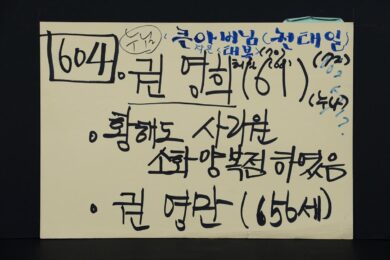 604 누님 큰아버님 천대임
대복 (70) (72)
• 권 영희 (61) (누나)
• 황해도 사리원
소화양복점 하였음
• 권 영만 (65세)